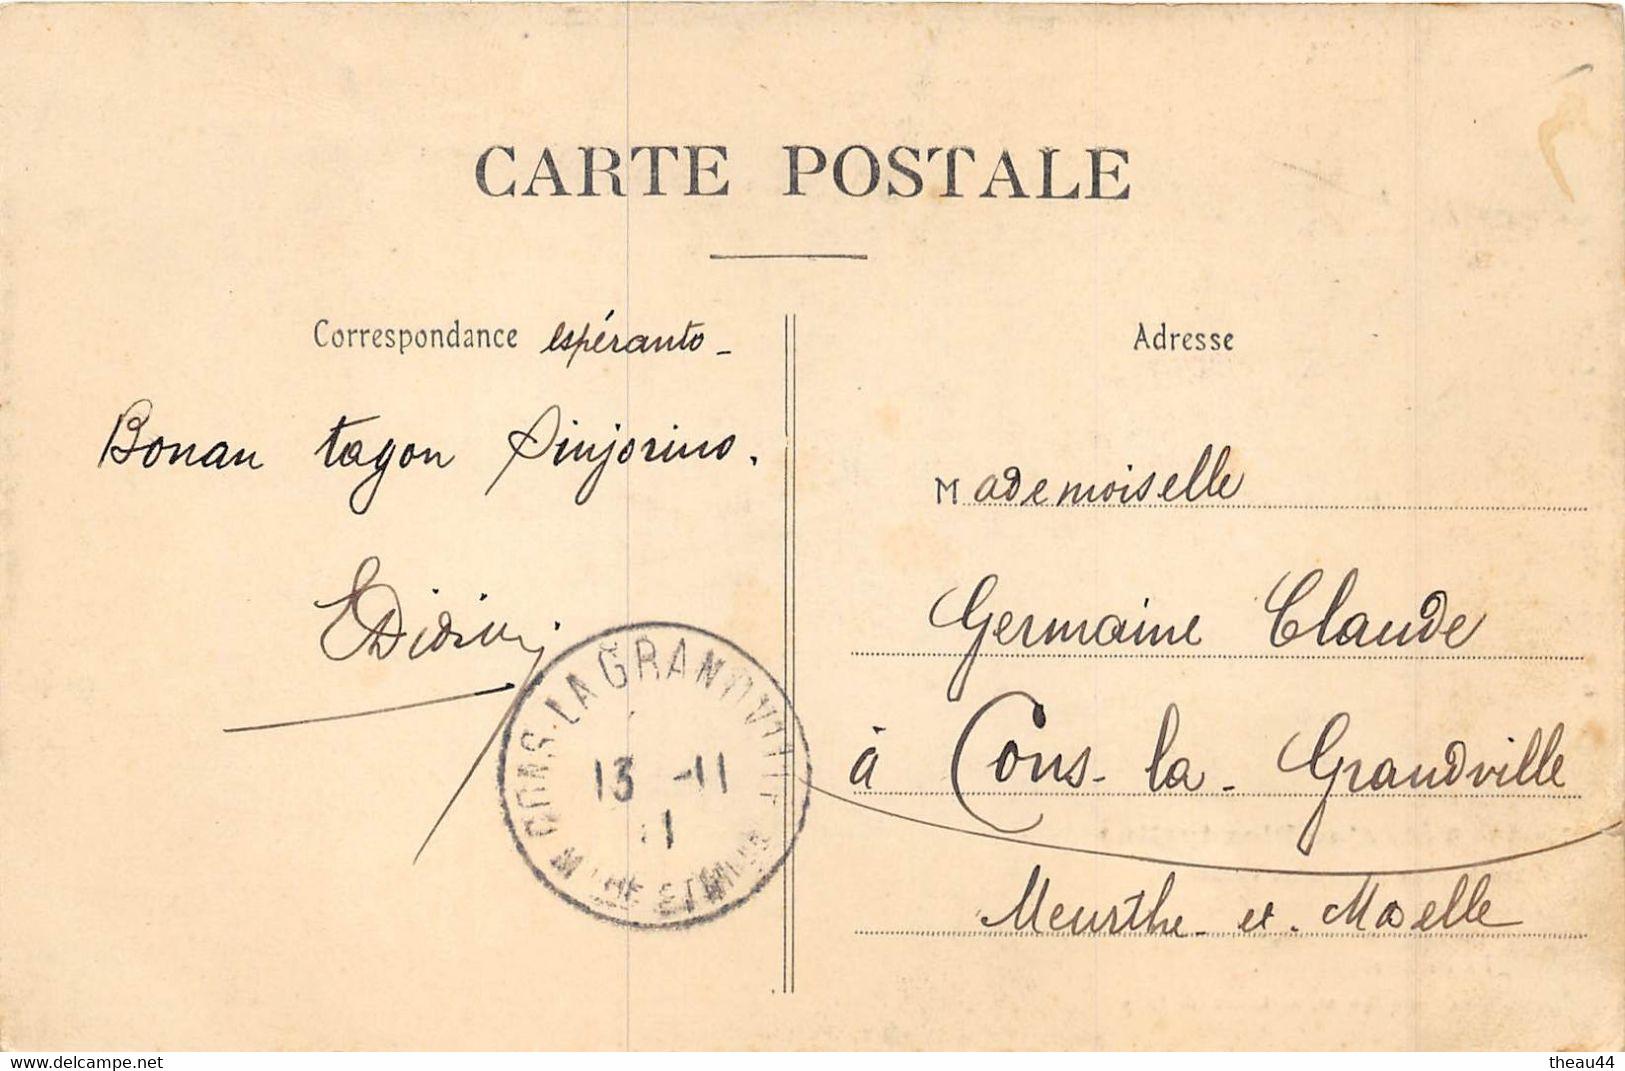 CARTE POSTALE
Correspondance espéranto -
Bonan tagon Sinjorino.
Adresse
Mademoiselle
Germaine Claude
à Cons-la-Grandville
Meurthe-et-Moselle
CONS-LA-GRANDVILLE
13 -11
11
www.delcampe.net
theau44